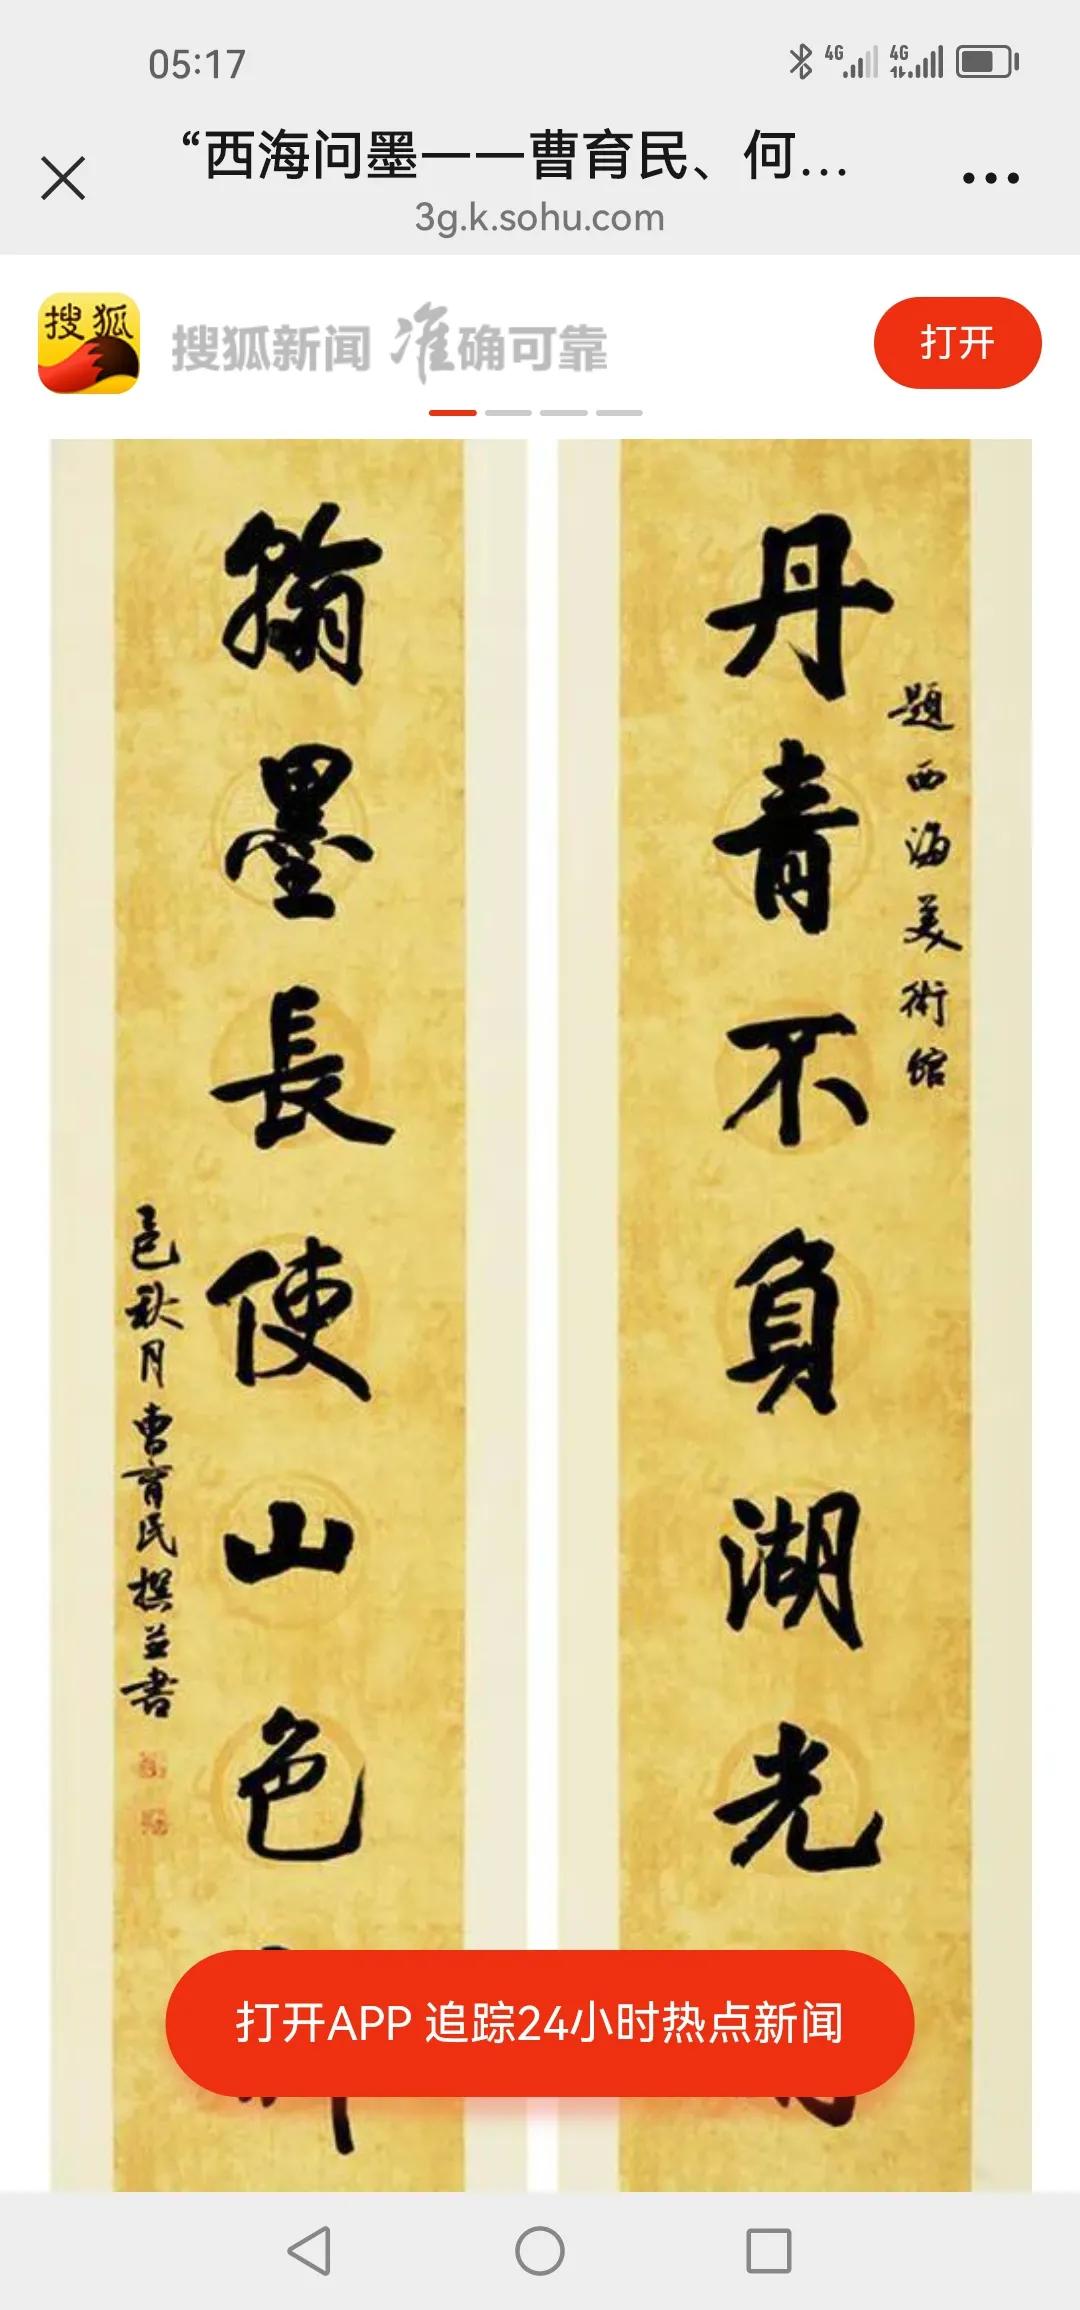 05:17
4G 4G
“西海问墨一一曹育民、何...
3g.k.sohu.com
搜狐
搜狐新闻 准确可靠
打开
丹青不負湖光
題西海美術馆
翰墨長使山色
秋月曹育民撰並書
打开APP 追踪24小时热点新闻